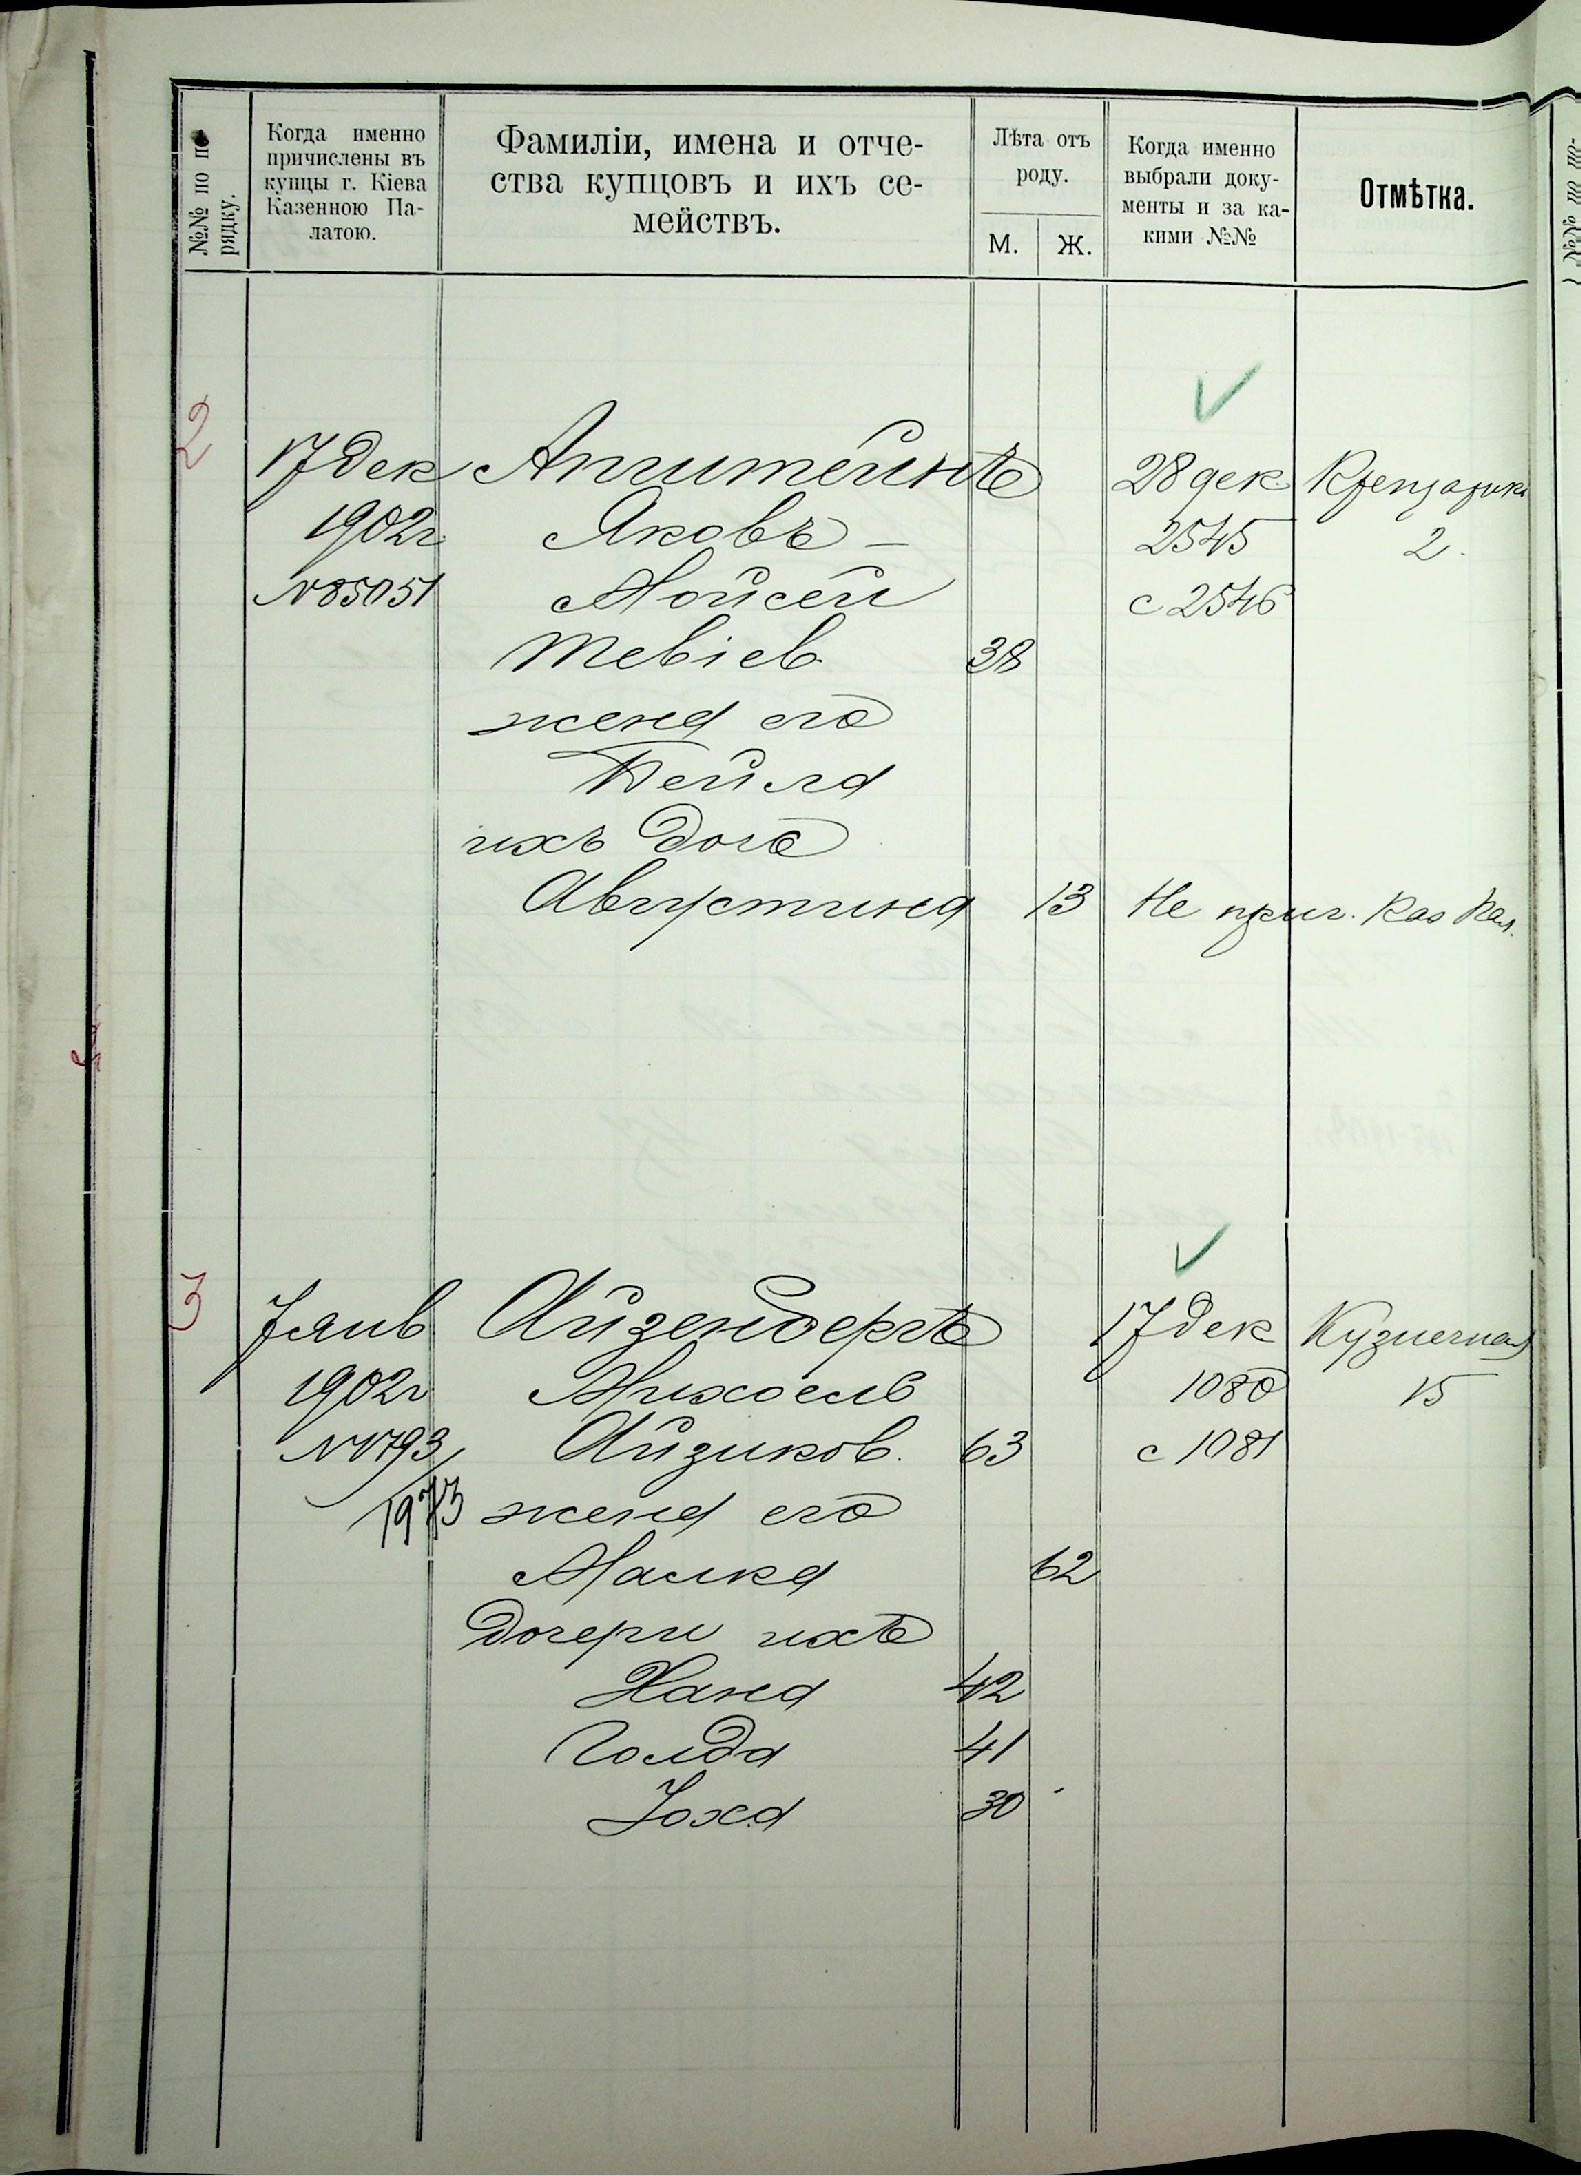 №№ по по-
рядку.
Когда именно
причислены въ
купцы г. Кіева
Казенною Па-
латою.
Фамиліи, имена и отче-
ства купцовъ и ихъ се-
мействъ.
Лѣта отъ
роду.
М.
Ж.
Когда именно
выбрали доку-
менты и за ка-
кими №№
Отмѣтка.
2
17 дек
1902 г
№ 85051
Апштейнъ
Яковъ –
Мойсей
Тевіев. 38
жена его
Бейла
ихъ дочь
Августина 13
28 дек.
2545
с 2546
2.
Не прич. Каз Пал.
3
7 янв
1902 г
№ 1793/
1973
Айзенбергъ
Михоель
Айзиков. 63
жена его
Малка 62
дочери ихъ
Хана 42
Голда 41
Зоха 30
17 дек
1080
с 1081
Кузнечная
15